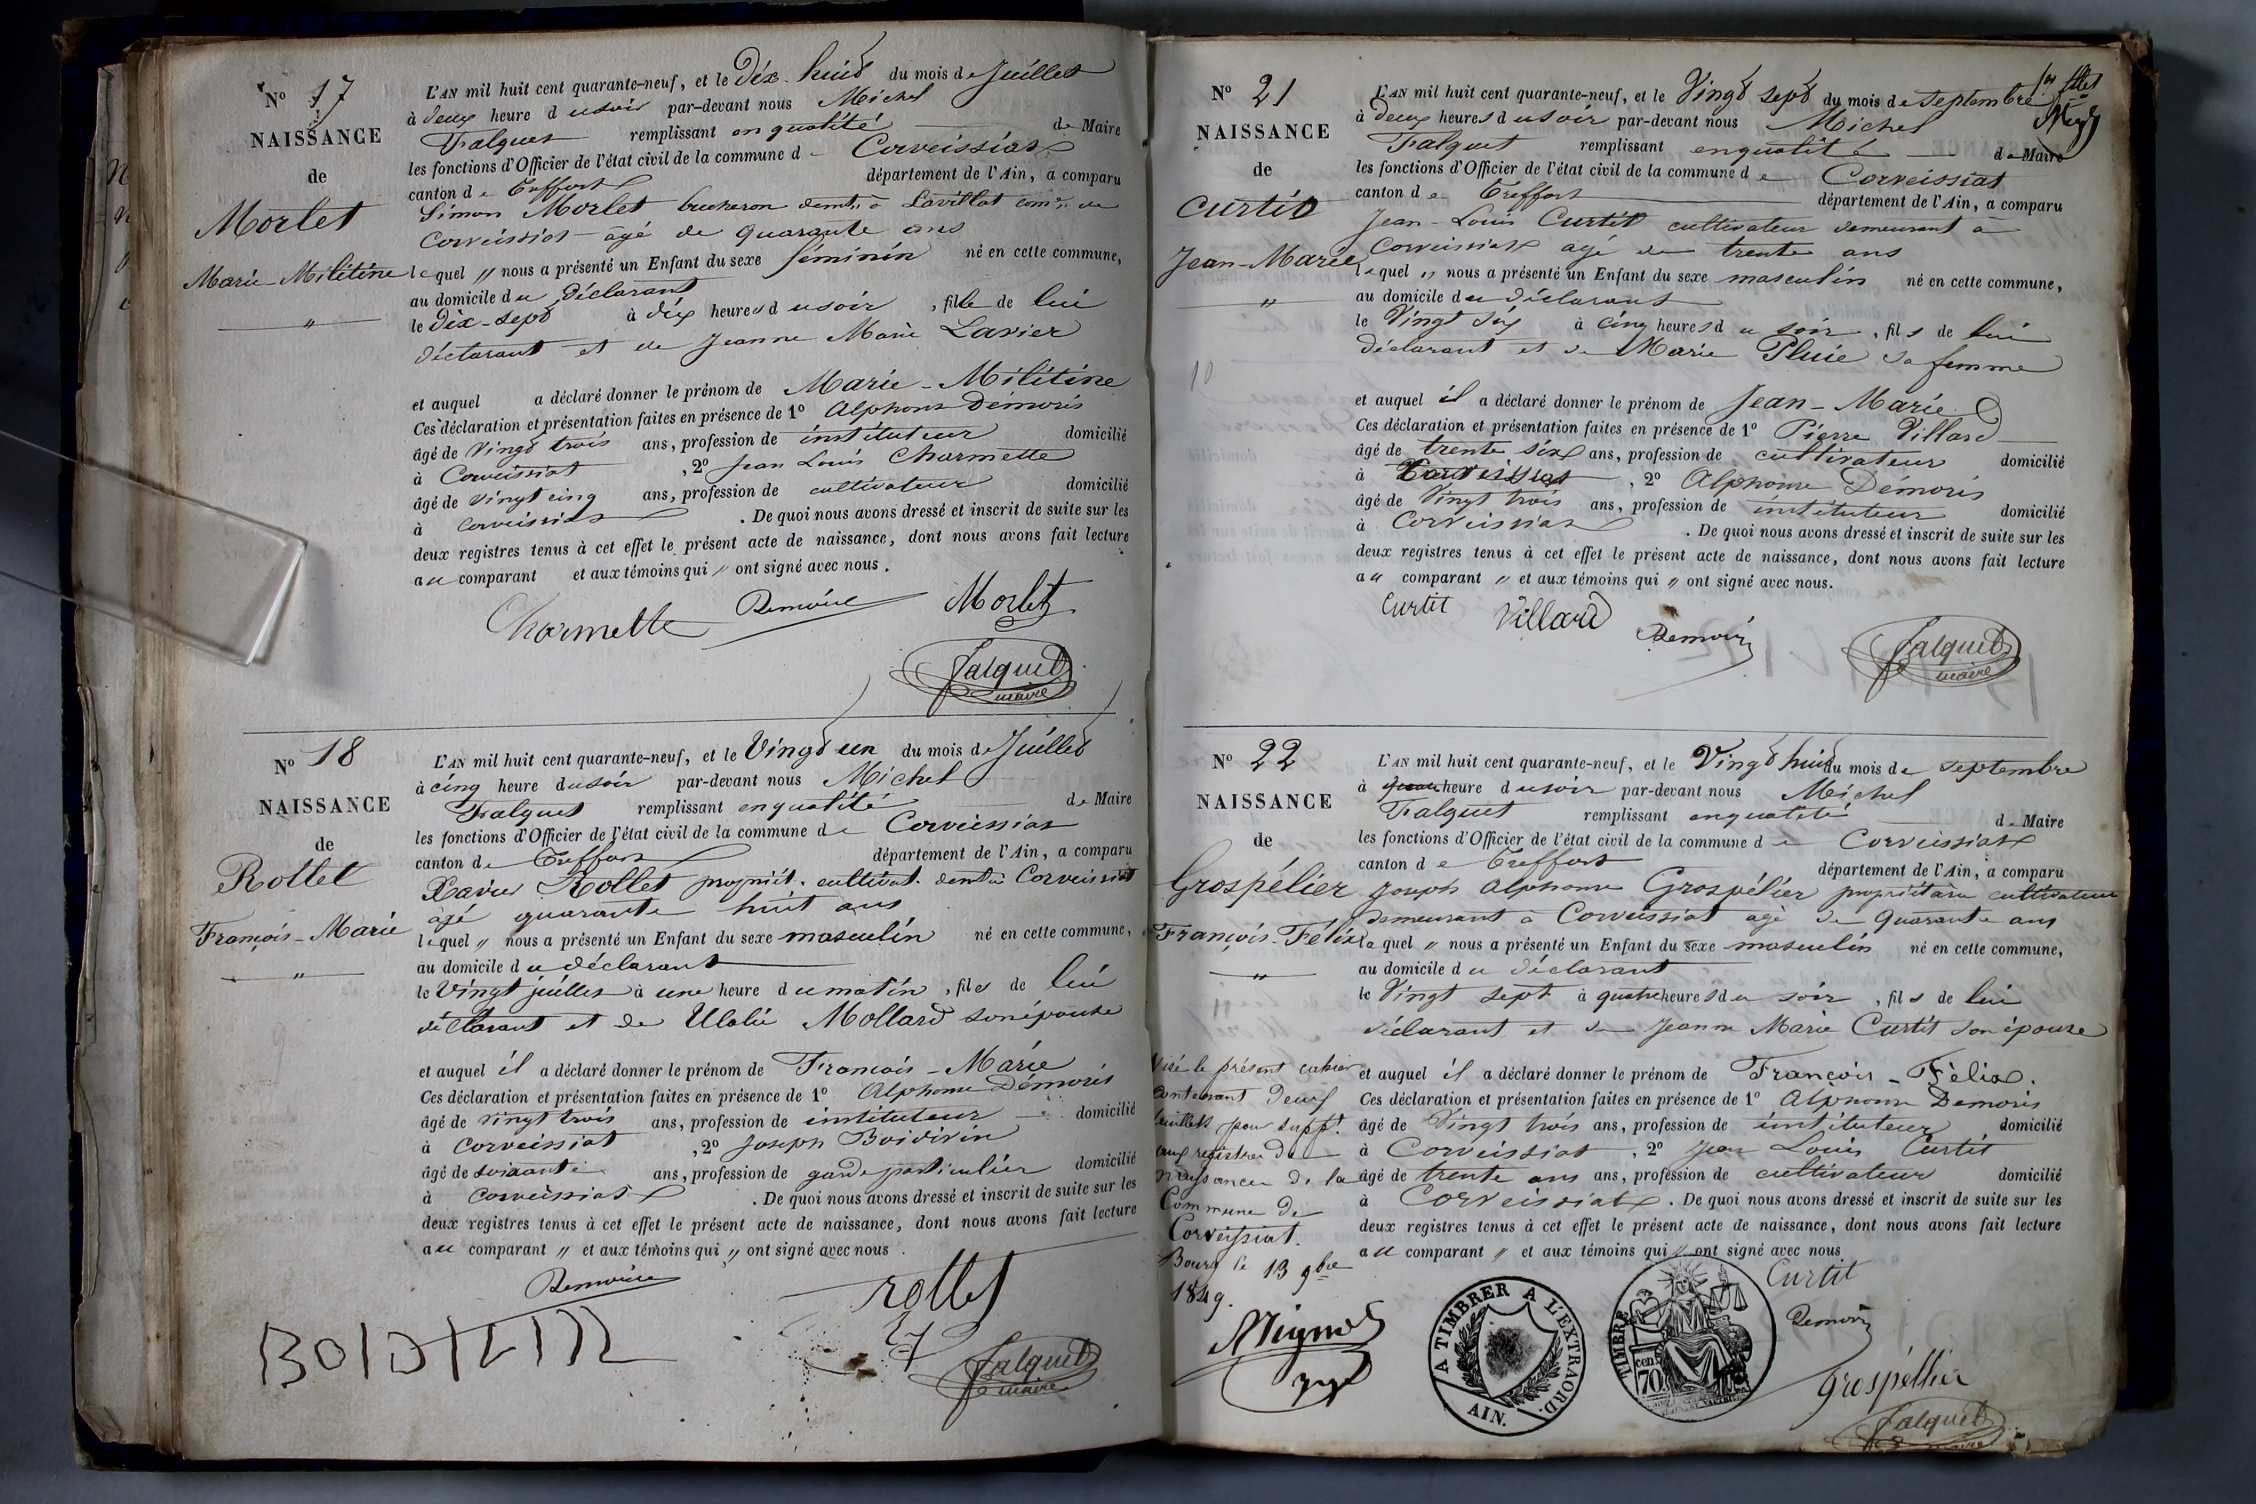 N° 17
NAISSANCE
de
Morlet
Marie-Militine
"
L'AN mil huit cent quarante-neuf, et le Dix-huit du mois de Juillet
à deux heure du soir par-devant nous Michel
Falquet remplissant en qualité de Maire
les fonctions d'Officier de l'état civil de la commune de Corveissiat
canton de Treffort département de l'Ain, a comparu
Simon Morlet bucheron demt. à Lavillat comne. de
Corveissiat âgé de quarante ans
lequel " nous a présenté un Enfant du sexe féminin né en cette commune,
au domicile du déclarant
le dix-sept à dix heures du soir, fille de lui
déclarant et de Jeanne Marie Lavier
et auquel a déclaré donner le prénom de Marie-Militine
Ces déclaration et présentation faites en présence de 1° Alphonse Démoris
âgé de vingt trois ans, profession de instituteur domicilié
à Corveissiat, 2° Jean Louis Charmette
âgé de vingt cinq ans, profession de cultivateur domicilié
à Corveissiat. De quoi nous avons dressé et inscrit de suite sur les
deux registres tenus à cet effet le présent acte de naissance, dont nous avons fait lecture
au comparant et aux témoins qui " ont signé avec nous.
Charmette Morlet
Falquet
maire
N° 18
NAISSANCE
de
Rollet
François-Marie
"
L'AN mil huit cent quarante-neuf, et le Vingt un du mois de Juillet
à cinq heure du soir par-devant nous Michel
Falquet remplissant en qualité de Maire
les fonctions d'Officier de l'état civil de la commune de Corveissiat
canton de Treffort département de l'Ain, a comparu
Xavier Rollet propriét. cultivat. demt. à Corveissiat
âgé quarante huit ans
lequel " nous a présenté un Enfant du sexe masculin né en cette commune,
au domicile du déclarant
le Vingt juillet à une heure du matin, fils de lui
déclarant et de Ulalie Mollard son épouse
et auquel il a déclaré donner le prénom de François-Marie
Ces déclaration et présentation faites en présence de 1° Alphonse Démoris
âgé de vingt trois ans, profession de instituteur domicilié
à Corveissiat, 2° Joseph Boidivin
âgé de soixante ans, profession de garde particulier domicilié
à Corveissiat. De quoi nous avons dressé et inscrit de suite sur les
deux registres tenus à cet effet le présent acte de naissance, dont nous avons fait lecture
au comparant " et aux témoins qui " ont signé avec nous.
rollet
Falquet
maire
N° 21
NAISSANCE
de
Curtit
Jean-Marie
"
10
L'AN mil huit cent quarante-neuf, et le Vingt sept du mois de septembre
à deux heures du soir par-devant nous Michel
Falquet remplissant en qualité de Maire
les fonctions d'Officier de l'état civil de la commune de Corveissiat
canton de Treffort département de l'Ain, a comparu
Jean-Louis Curtit cultivateur demeurant à
Corveissiat agé de trente ans
lequel " nous a présenté un Enfant du sexe masculin né en cette commune,
au domicile du déclarant
le Vingt six à cinq heures du soir, fils de lui
déclarant et de Marie Pluie sa femme
et auquel il a déclaré donner le prénom de Jean-Marie
Ces déclaration et présentation faites en présence de 1° Pierre Villard
âgé de trente six ans, profession de cultivateur domicilié
à Corveissiat, 2° Alphonse Démoris
âgé de Vingt trois ans, profession de instituteur domicilié
à Corveissiat. De quoi nous avons dressé et inscrit de suite sur les
deux registres tenus à cet effet le présent acte de naissance, dont nous avons fait lecture
au comparant " et aux témoins qui " ont signé avec nous.
Curtit Villard
Falquet
maire
N° 22
NAISSANCE
de
Grospélier
François-Félix
"
L'AN mil huit cent quarante-neuf, et le Vingt huit du mois de septembre
à heure du soir par-devant nous Michel
Falquet remplissant en qualité de Maire
les fonctions d'Officier de l'état civil de la commune de Corveissiat
canton de Treffort département de l'Ain, a comparu
Joseph Alphonse Grospélier propriétaire cultivateur
demeurant à Corveissiat agé de quarante ans
lequel " nous a présenté un Enfant du sexe masculin né en cette commune,
au domicile du déclarant
le Vingt sept à quatre heures du soir, fils de lui
déclarant et de Jeanne Marie Curtit son épouse
et auquel il a déclaré donner le prénom de François-Félix.
Ces déclaration et présentation faites en présence de 1° Alphonse Demoris
âgé de Vingt trois ans, profession de instituteur domicilié
à Corveissiat, 2° Jean Louis Curtit
âgé de trente ans ans, profession de cultivateur domicilié
à Corveissiat. De quoi nous avons dressé et inscrit de suite sur les
deux registres tenus à cet effet le présent acte de naissance, dont nous avons fait lecture
au comparant " et aux témoins qui " ont signé avec nous
Visé le présent cahier
contenant deux
feuillets pour suppt.
aux registres de
naissances de la
Commune de
Corveissiat.
Bourg le 13 9bre
1849.
A TIMBRER A L'EXTRAORD.
AIN.
TIMBRE
70 cen.
Curtit
grospéllier
Falquet
maire